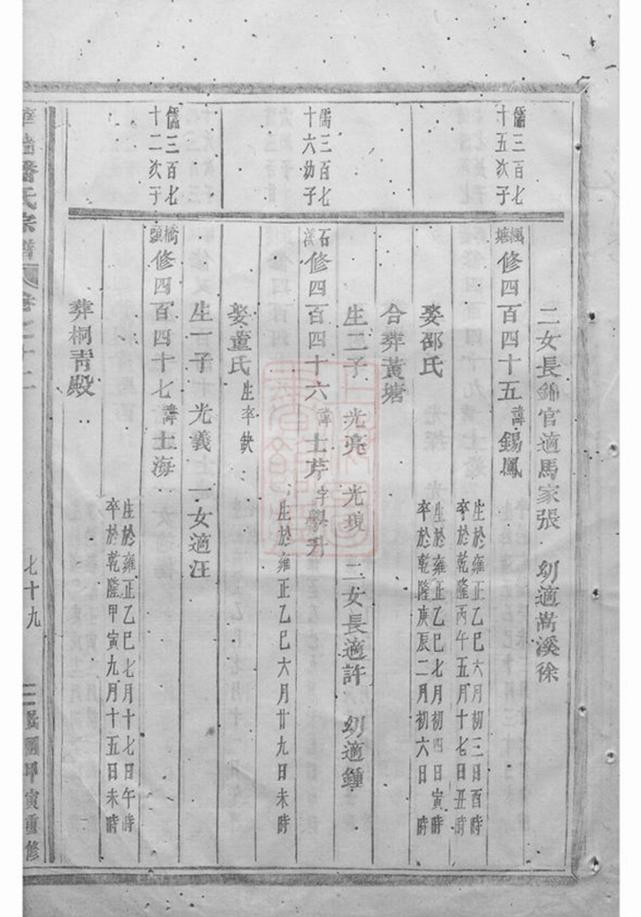 二女長錦官適馬家張 幼適嵩溪徐
儒三百七十五次子
楓塘 修四百四十五 諱錫鳳
生於雍正乙巳六月初三日酉時
卒於乾隆丙午五月十七日丑時
娶邵氏
生於雍正乙巳七月初四日寅時
卒於乾隆庚辰二月初六日 時
合葬黃塘
生二子 光亮 光現 二女長適許 幼適鍾
儒三百七十六幼子
石濱 修四百四十六 諱士芹字學升
生於雍正乙巳六月廿九日未時
娶童氏 生卒缺
生一子 光義 一女適汪
儒三百七十二次子
橋頭 修四百四十七 諱士海
生於雍正乙巳七月十七日午時
卒於乾隆甲寅九月十五日未時
葬桐青殿
潘氏宗譜
七十九
民國甲寅重修